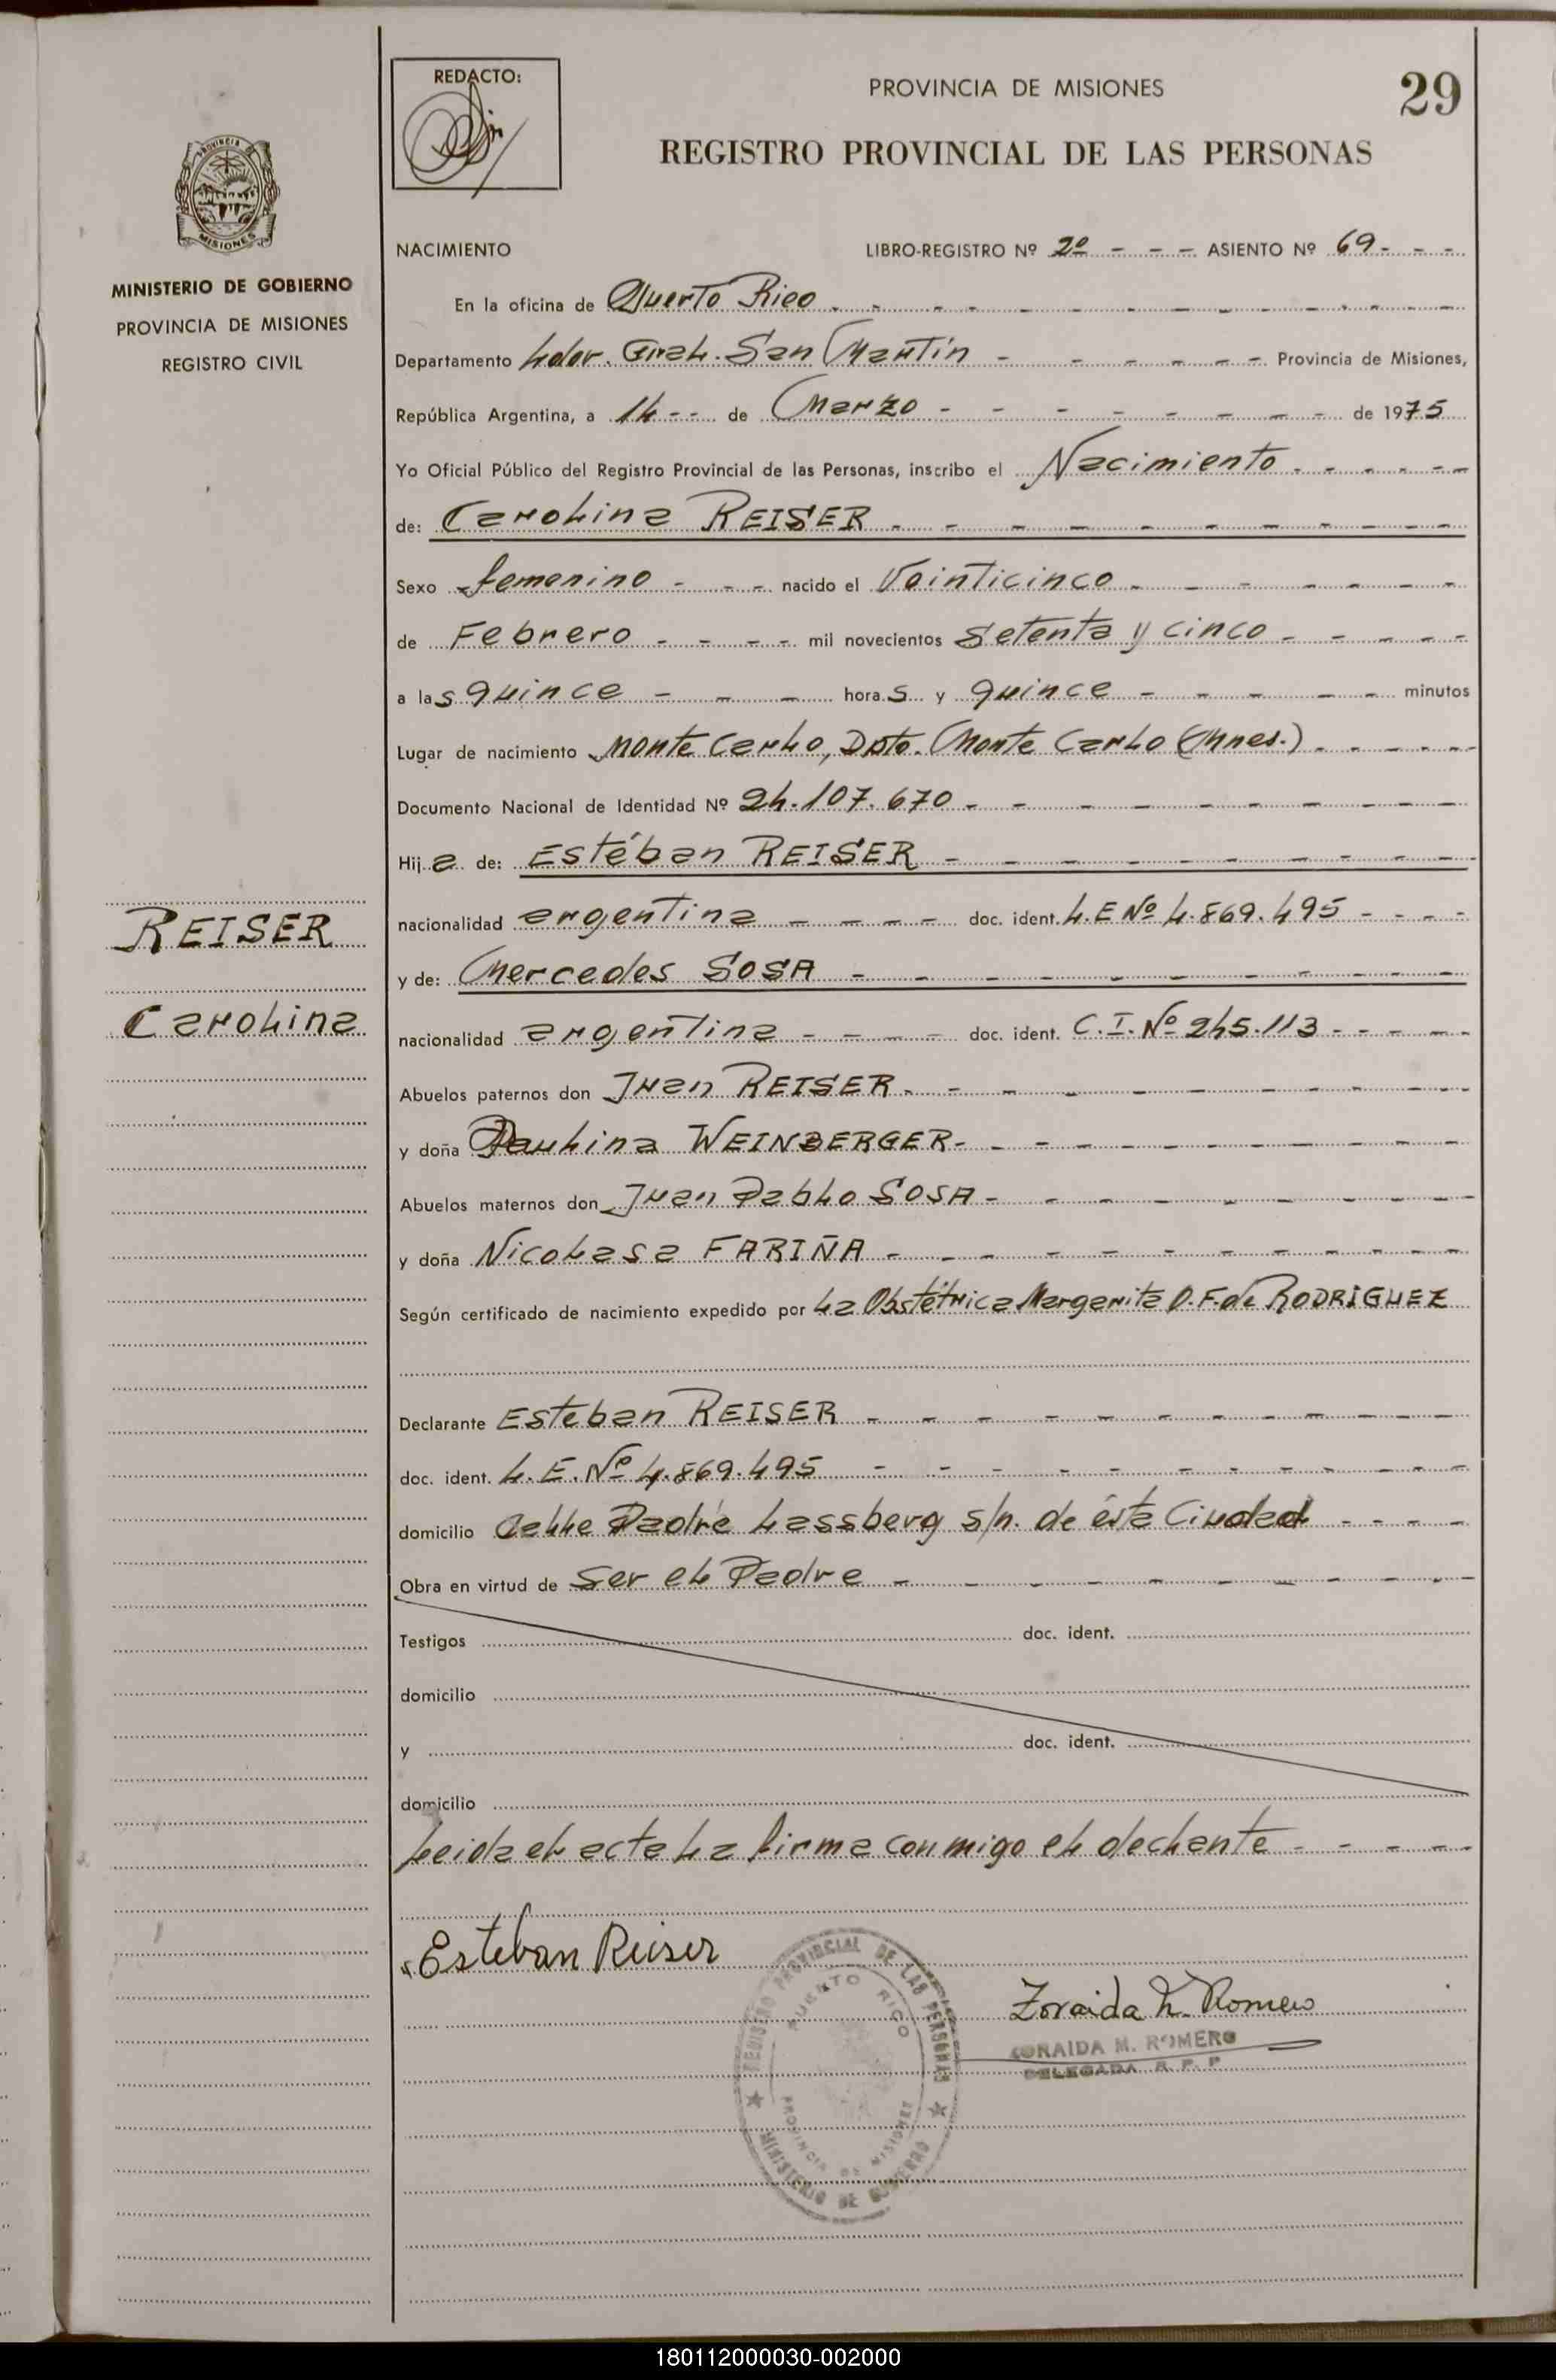 REDACTO:
PROVINCIA DE MISIONES
29
REGISTRO PROVINCIAL DE LAS PERSONAS
PROVINCIA DE
MISIONES
MINISTERIO DE GOBIERNO
PROVINCIA DE MISIONES
REGISTRO CIVIL
NACIMIENTO LIBRO-REGISTRO Nº 2º - - - ASIENTO Nº 69 - - -
En la oficina de Puerto Rico
Departamento Ldor. Gral. San Martín - - - - - - Provincia de Misiones,
República Argentina, a 14 - - de Marzo - - - - - - - - de 1975
Yo Oficial Público del Registro Provincial de las Personas, inscribo el Nacimiento
de: Carolina REISER
Sexo femenino - - - nacido el Veinticinco
de Febrero - - - - mil novecientos Setenta y cinco
a las quince - - - horas y quince - - - - - minutos
Lugar de nacimiento Monte Carlo, Dpto. Monte Carlo (Mnes.)
Documento Nacional de Identidad Nº 24.107.670
Hija de: Estéban REISER
nacionalidad argentina - - - - doc. ident. L.E Nº 4.869.495 - - - -
REISER
y de: Mercedes SOSA
Carolina
nacionalidad argentina - - - - doc. ident. C.I. Nº 245.113 - - - - -
Abuelos paternos don Juan REISER
y doña Paulina WEINBERGER
Abuelos maternos don Juan Pablo SOSA
y doña Nicolasa FARIÑA
Según certificado de nacimiento expedido por La Obstétrica Margarita D. F. de RODRIGUEZ
Declarante Esteban REISER
doc. ident. L.E. Nº 4.869.495
domicilio Calle Padre Lassberg s/n. de ésta Ciudad
Obra en virtud de Ser el Padre
Testigos doc. ident.
domicilio
y doc. ident.
domicilio
Leida el acta La firma conmigo el declante
Esteban Reiser
REGISTRO PROVINCIAL DE LAS PERSONAS
PUERTO RICO
PROVINCIA DE MISIONES
MINISTERIO DE GOBIERNO
Zoraida M. Romero
ZORAIDA M. ROMERO
DELEGADA R. P. P.
180112000030-002000